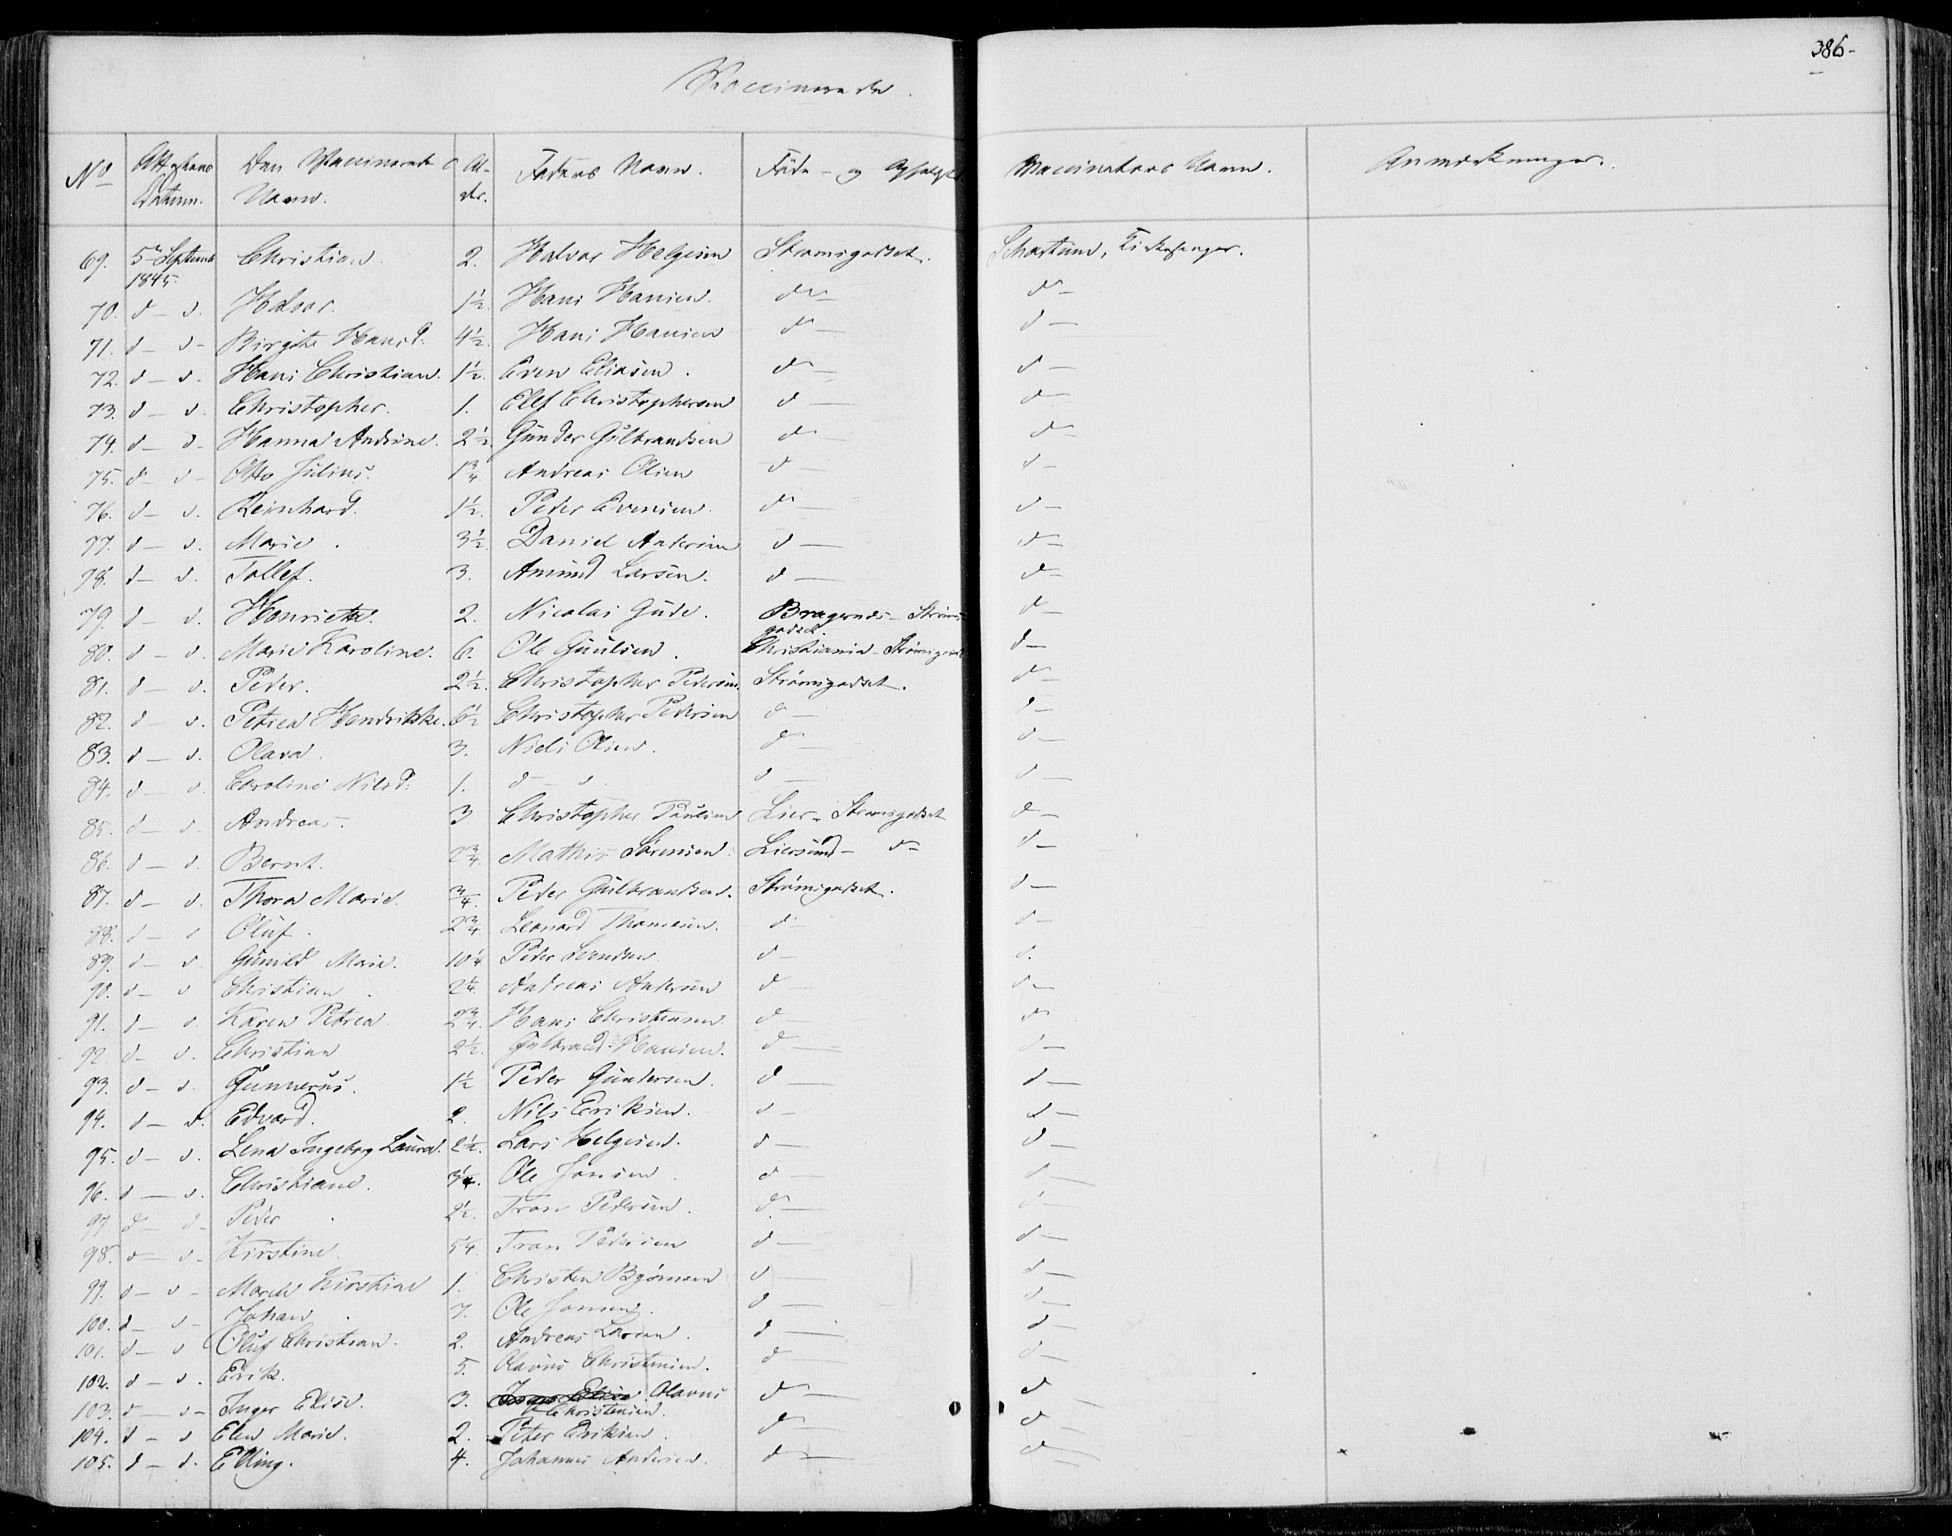 386-
Vaccinerede.
No | Attestens Datum. | Den Vaccinerede Navn. | Al-der. | Faders Navn. | Føde- og Opholds | Vaccinateurs Navn. | Anmærkninger.
69. | 5te Septemb 1845. | Christian. | 2. | Halvor Helgesen | Strømsgodset. | Schartum, Kirkesanger.
70. | d - d. | Halvor. | 1½. | Hans Hansen. | d - | d -
71. | d - d - | Birgithe Hansd. | 4½. | Hans Hansen | d - | d -
72. | d - d. | Hans Christian. | 1½. | Even Eliasen. | d - | d -
73. | d - d. | Christopher. | 1. | Elef Christophersen | d - | d -
74. | d - d - | Hanna Andrine. | 2½. | Gunder Gulbrandsen | d - | d -
75. | d - d - | Otto Julius. | 1¾ | Andreas Olsen | d - | d -
76. | d - d. | Reinhard. | 1½. | Peder Evensen. | d - | d -
77. | d - d. | Marie. | 3½. | Daniel Andersen | d - | d -
78. | d - d. | Tollef. | 3. | Amund Larsen. | d - | d -
79. | d - d. | Henriette. | 2. | Nicolai Gude. | Bragernes - Strømsgodset. | d -
80. | d - d. | Marie Karoline. | 6. | Ole Guulsen. | Christiania - Strømsgodset | d -
81. | d - d. | Peder. | 2½. | Christopher Pedersen. | Strømsgodset. | d -
82. | d - d. | Petrea Hendrikke. | 6½ | Christopher Pedersen | d - | d -
83. | d - d. | Olava. | 3. | Niels Olsen. | d - | d -
84. | d - d. | Caroline Nilsd. | 1. | d - d. | d - | d -
85. | d - d. | Andreas. | 3 | Christopher Paulsen | Lier - Strømsgodset | d -
86. | d - d. | Bernt. | 2¾. | Mathis Sørensen. | Liersund - d - | d -
87. | d - d. | Thora Marie. | ¾. | Peder Gulbrandsen. | Strømsgodset. | d -
88. | d - d | Oluf. | 2¾ | Leonard Thomesen. | d - | d -
89. | d - d. | Gunild Marie. | 10¼ | Peder | d - | d.
90. | d - d | Christian. | 2¼. | Andreas Andersen | d - | d -
91. | d - d. | Karen Petrea. | 2¾. | Hans Christensen. | d - | d -
92 | d - d. | Christian | 2½. | Gulbrand Hansen. | d - | d -
93. | d - d. | Gunnerus. | 1½ | Peder Gundersen. | d - | d -
94. | d - d. | Edvard. | 2. | Nils Eriksen. | d - | d -
95. | d - d. | Lena Ingeborg Laura. | 2½. | Lars Helgesen. | d - | d -
96. | d - d. | Christiane. | 3¼. | Ole Jonsen. | d - | d -
97. | d - d - | Peder. | 2½. | Tron Pedersen. | d - | d -
98. | d - d - | Kirstine. | 5¼. | Tron Pedersen | d - | d -
99. | d - d - | Maren Kirstine | 1. | Christen Bjørnsen | d | d -
100. | d - d - | Johan. | 7. | Ole Jonsen. | d - | d -
101. | d - d | Oluf Christian. | 2. | Andreas Larsen. | d - | d -
102. | d - d. | Erik. | 5. | Olavus Christensen. | d - | d -
103. | d - d - | Inger Elise. | 3. | Olavus Christensen. | d - | d -
104. | d - d | Elen Marie. | 2. | Peter Eriksen. | d - | d -
105. | d - d. | Elling. | 4. | Johannes Andersen. | d - | d -